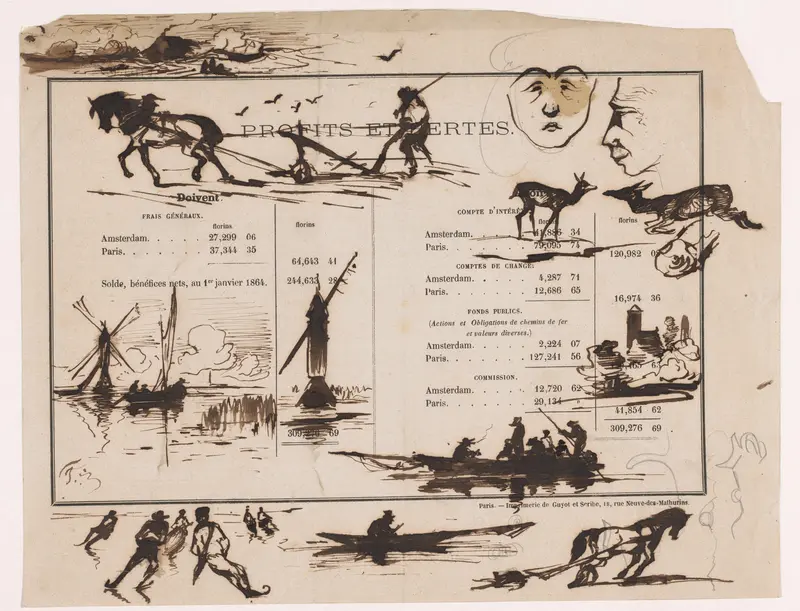 PROFITS ET PERTES.
Doivent
FRAIS GÉNÉRAUX.
florins
florins
Amsterdam. . . . . 27,299 06
Paris. . . . . . . 37,344 35
64,643 41
Solde, bénéfices nets, au 1er janvier 1864. 244,633 28
309,276 69
COMPTE D'INTÉRÊ
florins
Amsterdam. . . . . 41,886 34
Paris. . . . . . . 79,095 74
120,982
COMPTES DE CHANGE.
Amsterdam. . . . . 4,287 71
Paris. . . . . . . 12,686 65
16,974 36
FONDS PUBLICS.
(Actions et Obligations de chemins de fer
et valeurs diverses.)
Amsterdam. . . . . 2,224 07
Paris. . . . . . . 127,241 56
COMMISSION.
Amsterdam. . . . . 12,720 62
Paris. . . . . . . 29,134 »
41,854 62
309,276 69
Paris. — Imprimerie de Guyot et Scribe, 18, rue Neuve-des-Mathurins.